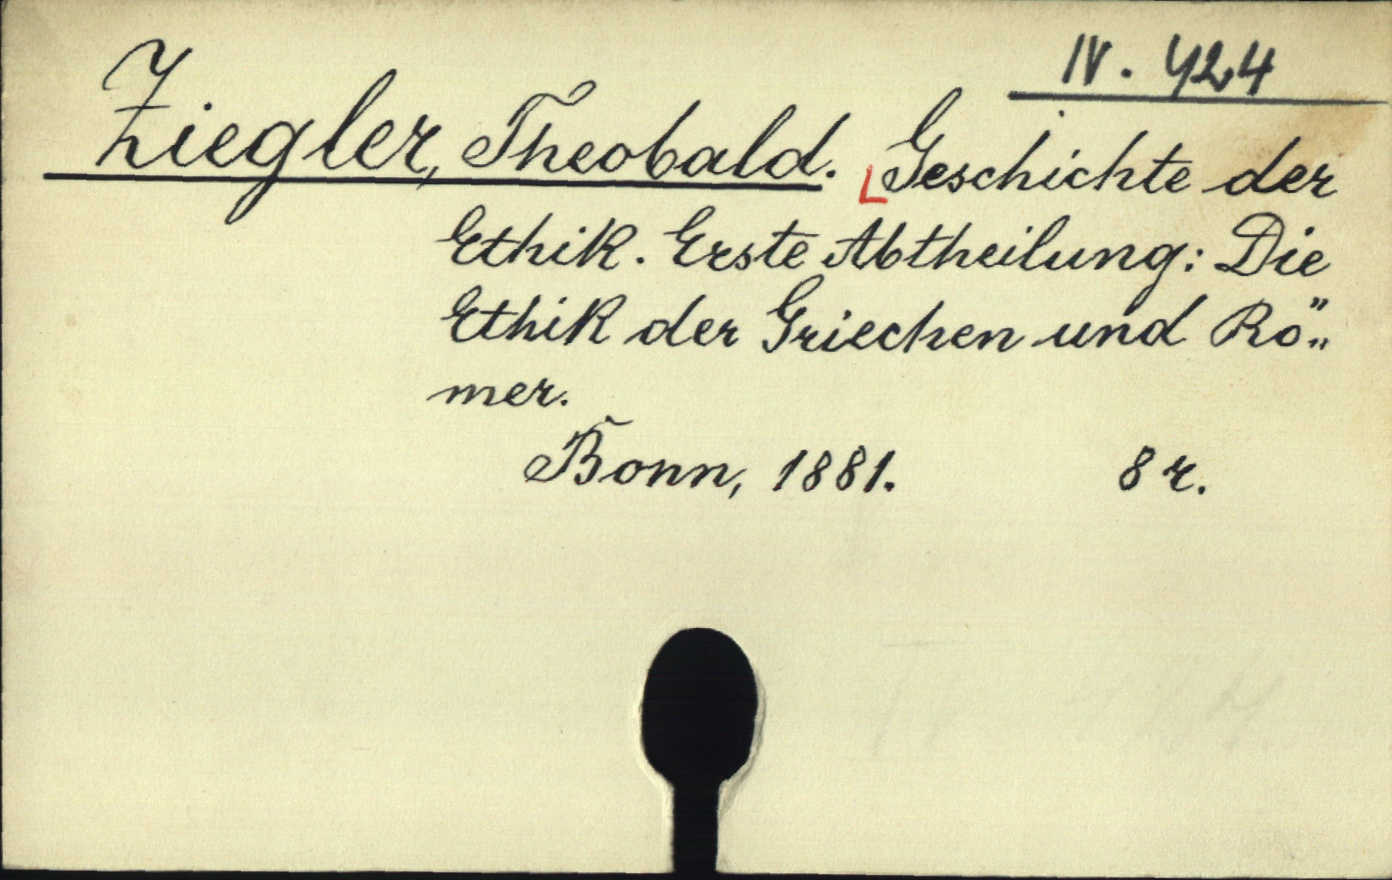 IV. 424
Ziegler, Theobald. Geschichte der
Ethik. Erste Abtheilung: Die
Ethik der Griechen und Rö„
mer.
Bonn, 1881. 8 r.